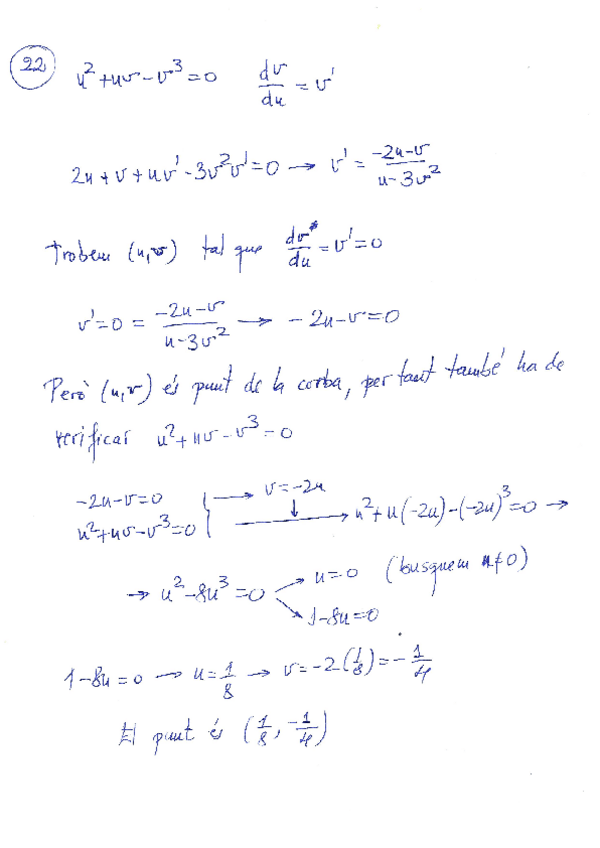 22 u²+uv-v³=0 dv/du = v'
2u+v+uv'-3v²v'=0 → v' = (-2u-v)/(u-3v²)
Trobem (u,v) tal que dv/du = v'=0
v'=0 = (-2u-v)/(u-3v²) → -2u-v=0
Però (u,v) és punt de la corba, per tant també ha de
verificar u²+uv-v³=0
-2u-v=0 → v=-2u
u²+uv-v³=0 → u²+u(-2u)-(-2u)³=0 →
→ u²-8u³=0 u=0 (busquem u≠0)
1-8u=0
1-8u=0 → u=1/8 → v=-2(1/8)=-1/4
El punt és (1/8, -1/4)